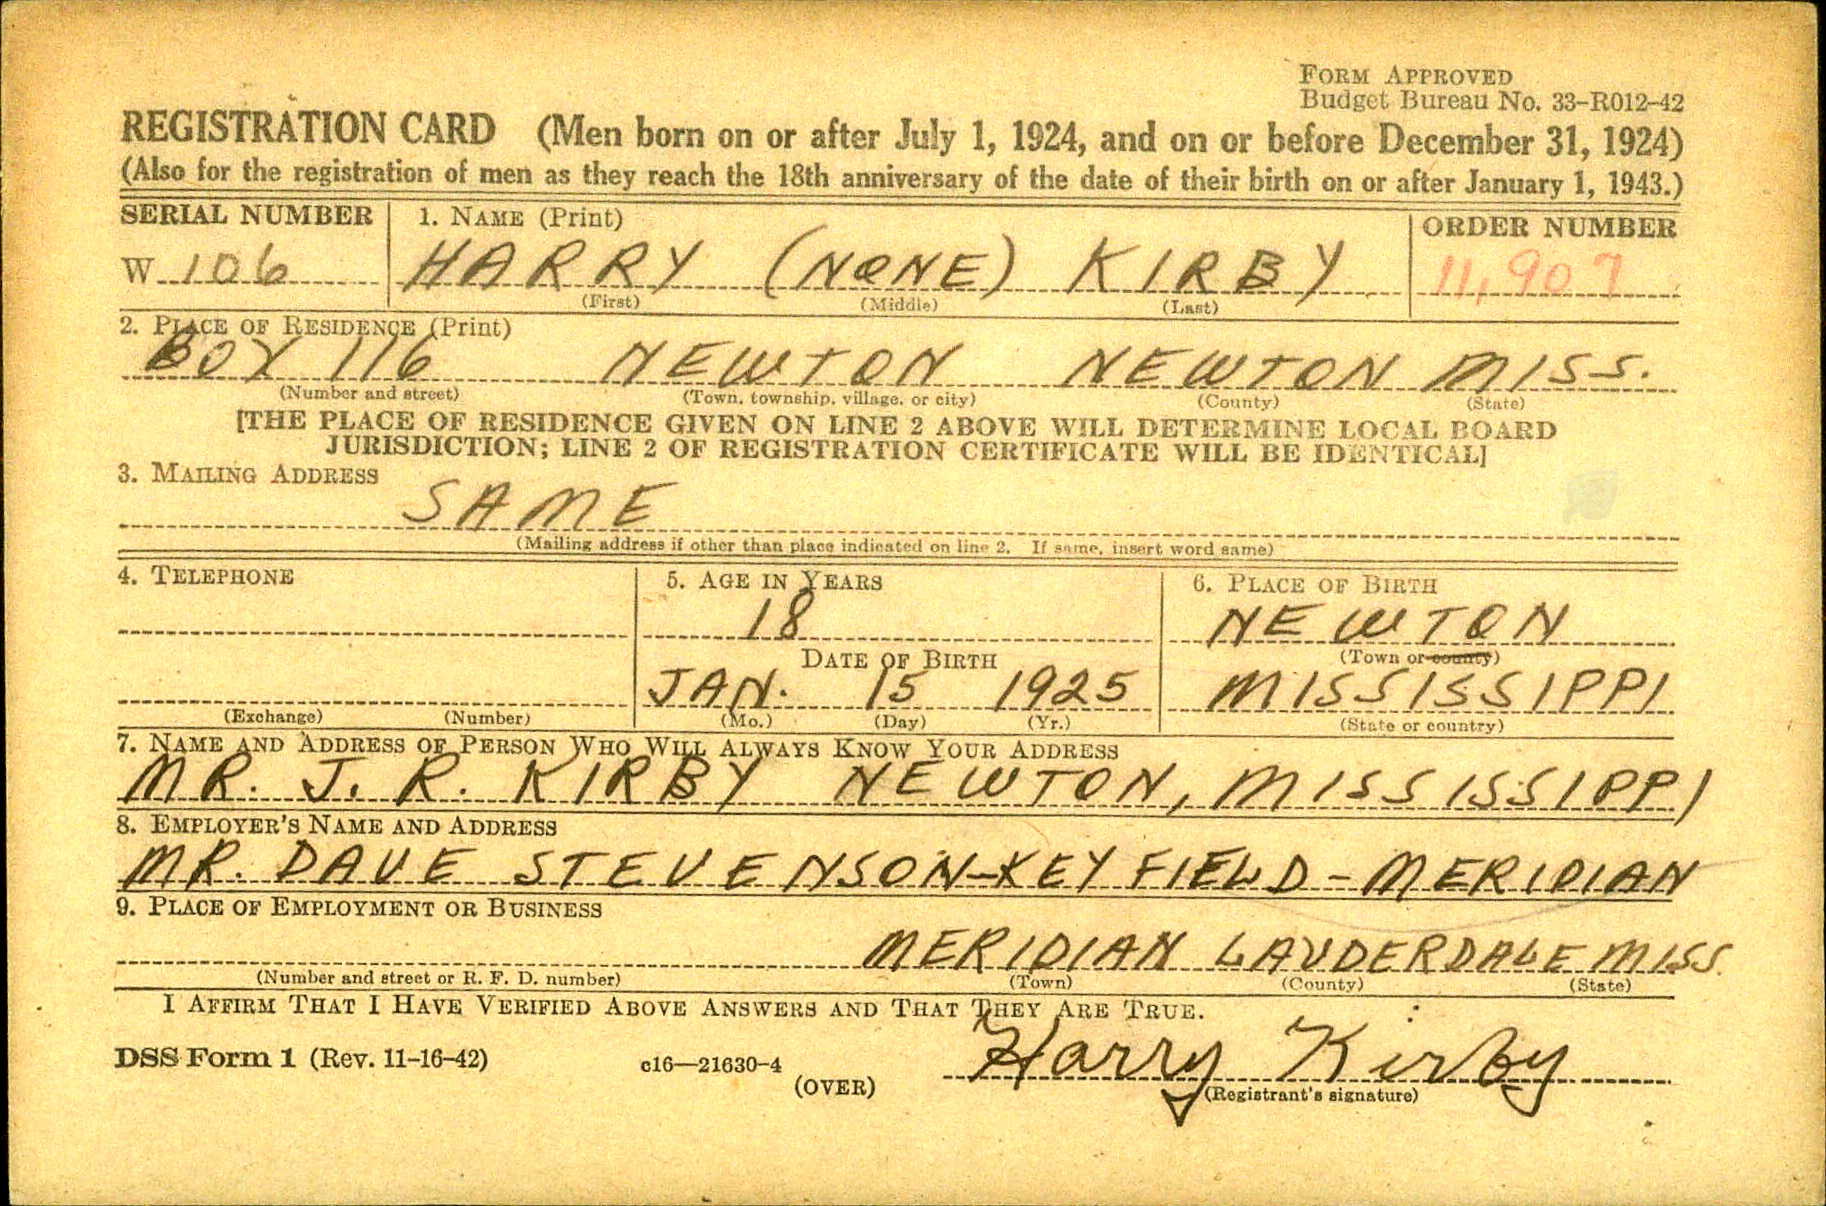 FORM APPROVED
Budget Bureau No. 33-R012-42
REGISTRATION CARD (Men born on or after July 1, 1924, and on or before December 31, 1924)
(Also for the registration of men as they reach the 18th anniversary of the date of their birth on or after January 1, 1943.)
SERIAL NUMBER 1. NAME (Print) ORDER NUMBER
W 106 HARRY (NONE) KIRBY 11,907
(First) (Middle) (Last)
2. PLACE OF RESIDENCE (Print)
BOX 116 NEWTON NEWTON MISS.
(Number and street) (Town, township, village, or city) (County) (State)
[THE PLACE OF RESIDENCE GIVEN ON LINE 2 ABOVE WILL DETERMINE LOCAL BOARD
JURISDICTION; LINE 2 OF REGISTRATION CERTIFICATE WILL BE IDENTICAL]
3. MAILING ADDRESS
SAME
(Mailing address if other than place indicated on line 2. If same, insert word same)
4. TELEPHONE 5. AGE IN YEARS 6. PLACE OF BIRTH
18 NEWTON
DATE OF BIRTH (Town or county)
JAN. 15 1925 MISSISSIPPI
(Exchange) (Number) (Mo.) (Day) (Yr.) (State or country)
7. NAME AND ADDRESS OF PERSON WHO WILL ALWAYS KNOW YOUR ADDRESS
MR. J. R. KIRBY NEWTON, MISSISSIPPI
8. EMPLOYER'S NAME AND ADDRESS
MR. DAVE STEVENSON-KEY FIELD - MERIDIAN
9. PLACE OF EMPLOYMENT OR BUSINESS
MERIDIAN LAUDERDALE MISS.
(Number and street or R. F. D. number) (Town) (County) (State)
I AFFIRM THAT I HAVE VERIFIED ABOVE ANSWERS AND THAT THEY ARE TRUE.
DSS Form 1 (Rev. 11-16-42) c16—21630-4 Harry Kirby
(OVER) (Registrant's signature)